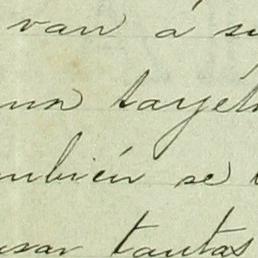 van á su
una tarjét
mbién se
usar tantas